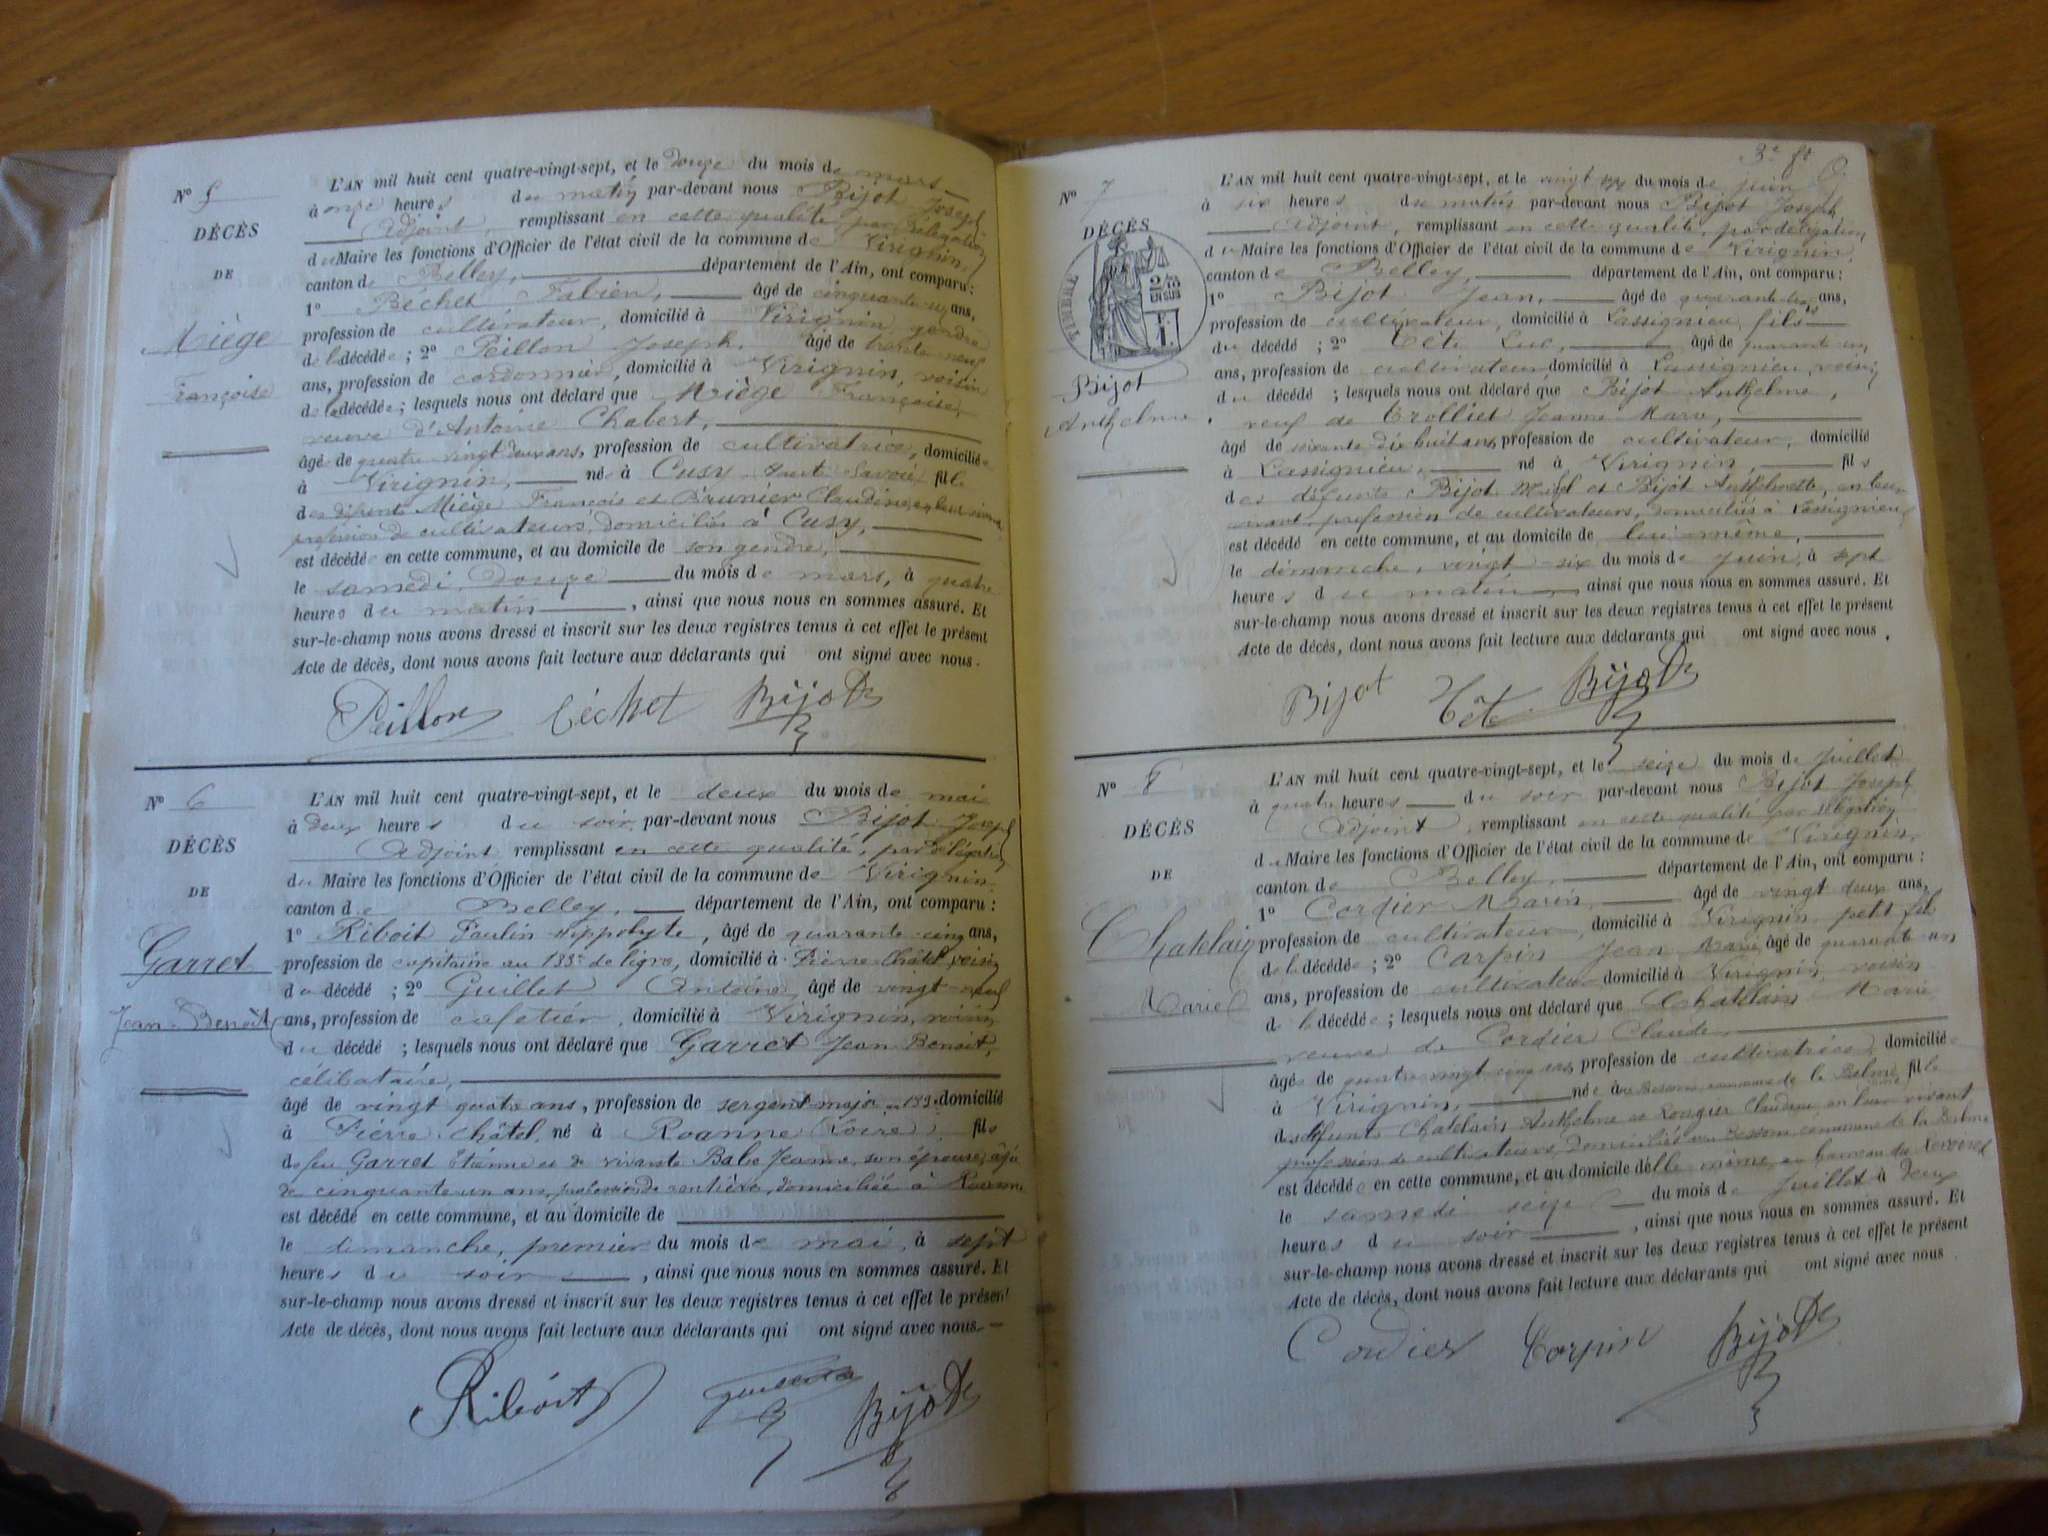 N° 5
DÉCÈS
DE
Miège
Françoise
L'AN mil huit cent quatre-vingt-sept, et le douze du mois de mars
à onze heures du matin par-devant nous Bijot Joseph
Adjoint, remplissant en cette qualité, par délégation
du Maire les fonctions d'Officier de l'état civil de la commune de Virignin,
canton de Belley, département de l'Ain, ont comparu:
1° Béchet Fabien, âgé de cinquante un ans,
profession de cultivateur, domicilié à Virignin, gendre
de la décédée; 2° Peillon Joseph, âgé de trente neuf
ans, profession de cordonnier, domicilié à Virignin, voisin
de la décédée; lesquels nous ont déclaré que Miège Françoise,
veuve d'Antoine Chabert,
âgé de quatre vingt deux ans, profession de cultivatrice, domiciliée
à Virignin, né à Cusy Haute Savoie, fille
des défunts Miège François et Brunier Claudine, en leur vivant
profession de cultivateurs, domiciliés à Cusy,
est décédée en cette commune, et au domicile de son gendre,
le samedi, douze du mois de mars, à quatre
heures du matin, ainsi que nous nous en sommes assuré. Et
sur-le-champ nous avons dressé et inscrit sur les deux registres tenus à cet effet le présent
Acte de décès, dont nous avons fait lecture aux déclarants qui ont signé avec nous.
Peillon Béchet Bijot
N° 6
DÉCÈS
DE
Garret
Jean-Benoît
L'AN mil huit cent quatre-vingt-sept, et le deux du mois de mai
à deux heures du soir, par-devant nous Bijot Joseph
Adjoint remplissant en cette qualité, par délégation
du Maire les fonctions d'Officier de l'état civil de la commune de Virignin.
canton de Belley, département de l'Ain, ont comparu:
1° Riboit Paulin Hippolyte, âgé de quarante cinq ans,
profession de capitaine au 133e de ligne, domicilié à Pierre-Châtel, voisin
du décédé; 2° Guillet Antoine, âgé de vingt neuf
ans, profession de cafetier, domicilié à Virignin, voisin
du décédé; lesquels nous ont déclaré que Garret Jean Benoit,
célibataire,
âgé de vingt quatre ans, profession de sergent major au 133e domicilié
à Pierre-Châtel, né à Roanne (Loire), fils
de feu Garret Etienne et de vivante Jeanne, son épouse, âgée
de cinquante un ans, profession de rentière, domiciliée à Roanne
est décédé en cette commune, et au domicile de
le dimanche, premier du mois de mai, à sept
heures du soir, ainsi que nous nous en sommes assuré. Et
sur-le-champ nous avons dressé et inscrit sur les deux registres tenus à cet effet le présent
Acte de décès, dont nous avons fait lecture aux déclarants qui ont signé avec nous.
Riboit Bijot
3e ft
N° 7
DÉCÈS
TIMBRE
Bijot
Anthelme
L'AN mil huit cent quatre-vingt-sept, et le vingt du mois de juin
à six heures du matin par-devant nous Bijot Joseph
Adjoint, remplissant en cette qualité, par délégation
du Maire les fonctions d'Officier de l'état civil de la commune de Virignin,
canton de Belley, département de l'Ain, ont comparu:
1° Bijot Jean, âgé de quarante ans,
profession de cultivateur, domicilié à Lassignieu, fils
du décédé; 2° Tête Luc, âgé de quarante un
ans, profession de cultivateur domicilié à Lassignieu, voisin
du décédé; lesquels nous ont déclaré que Bijot Anthelme,
veuf de Trolliet Jeanne Marie,
âgé de soixante dix huit ans, profession de cultivateur, domicilié
à Lassignieu, né à Virignin, fils
des défunts Bijot et Bijot Anthelmette, en leur
vivant profession de cultivateurs, domiciliés à Lassignieu,
est décédé en cette commune, et au domicile de lui même,
le dimanche, vingt-six du mois de juin, à sept
heures du matin, ainsi que nous nous en sommes assuré. Et
sur-le-champ nous avons dressé et inscrit sur les deux registres tenus à cet effet le présent
Acte de décès, dont nous avons fait lecture aux déclarants qui ont signé avec nous.
Bijot Tête Bijot
N° 8
DÉCÈS
DE
Chatelain
Marie
L'AN mil huit cent quatre-vingt-sept, et le seize du mois de juillet
à quatre heures du soir par-devant nous Bijot Joseph
Adjoint, remplissant en cette qualité par délégation
du Maire les fonctions d'Officier de l'état civil de la commune de Virignin,
canton de Belley, département de l'Ain, ont comparu:
1° Cordier Marin, âgé de vingt deux ans,
profession de cultivateur, domicilié à Virignin, petit fils
de la décédée; 2° Carpin Jean Marie, âgé de quarante un
ans, profession de cultivateur domicilié à Virignin, voisin
de la décédée; lesquels nous ont déclaré que Chatelain Marie
veuve de Cordier Claude
âgée de quatre vingt cinq ans, profession de cultivatrice, domiciliée
à Virignin, née à commune de la Balme, fille
des défunts Chatelain Anthelme et Claudine, en leur vivant
profession de cultivateurs, domiciliés commune de la Balme
est décédée en cette commune, et au domicile d'elle même, au hameau du
le samedi seize du mois de juillet à deux
heures du soir, ainsi que nous nous en sommes assuré. Et
sur-le-champ nous avons dressé et inscrit sur les deux registres tenus à cet effet le présent
Acte de décès, dont nous avons fait lecture aux déclarants qui ont signé avec nous
Cordier Carpin Bijot